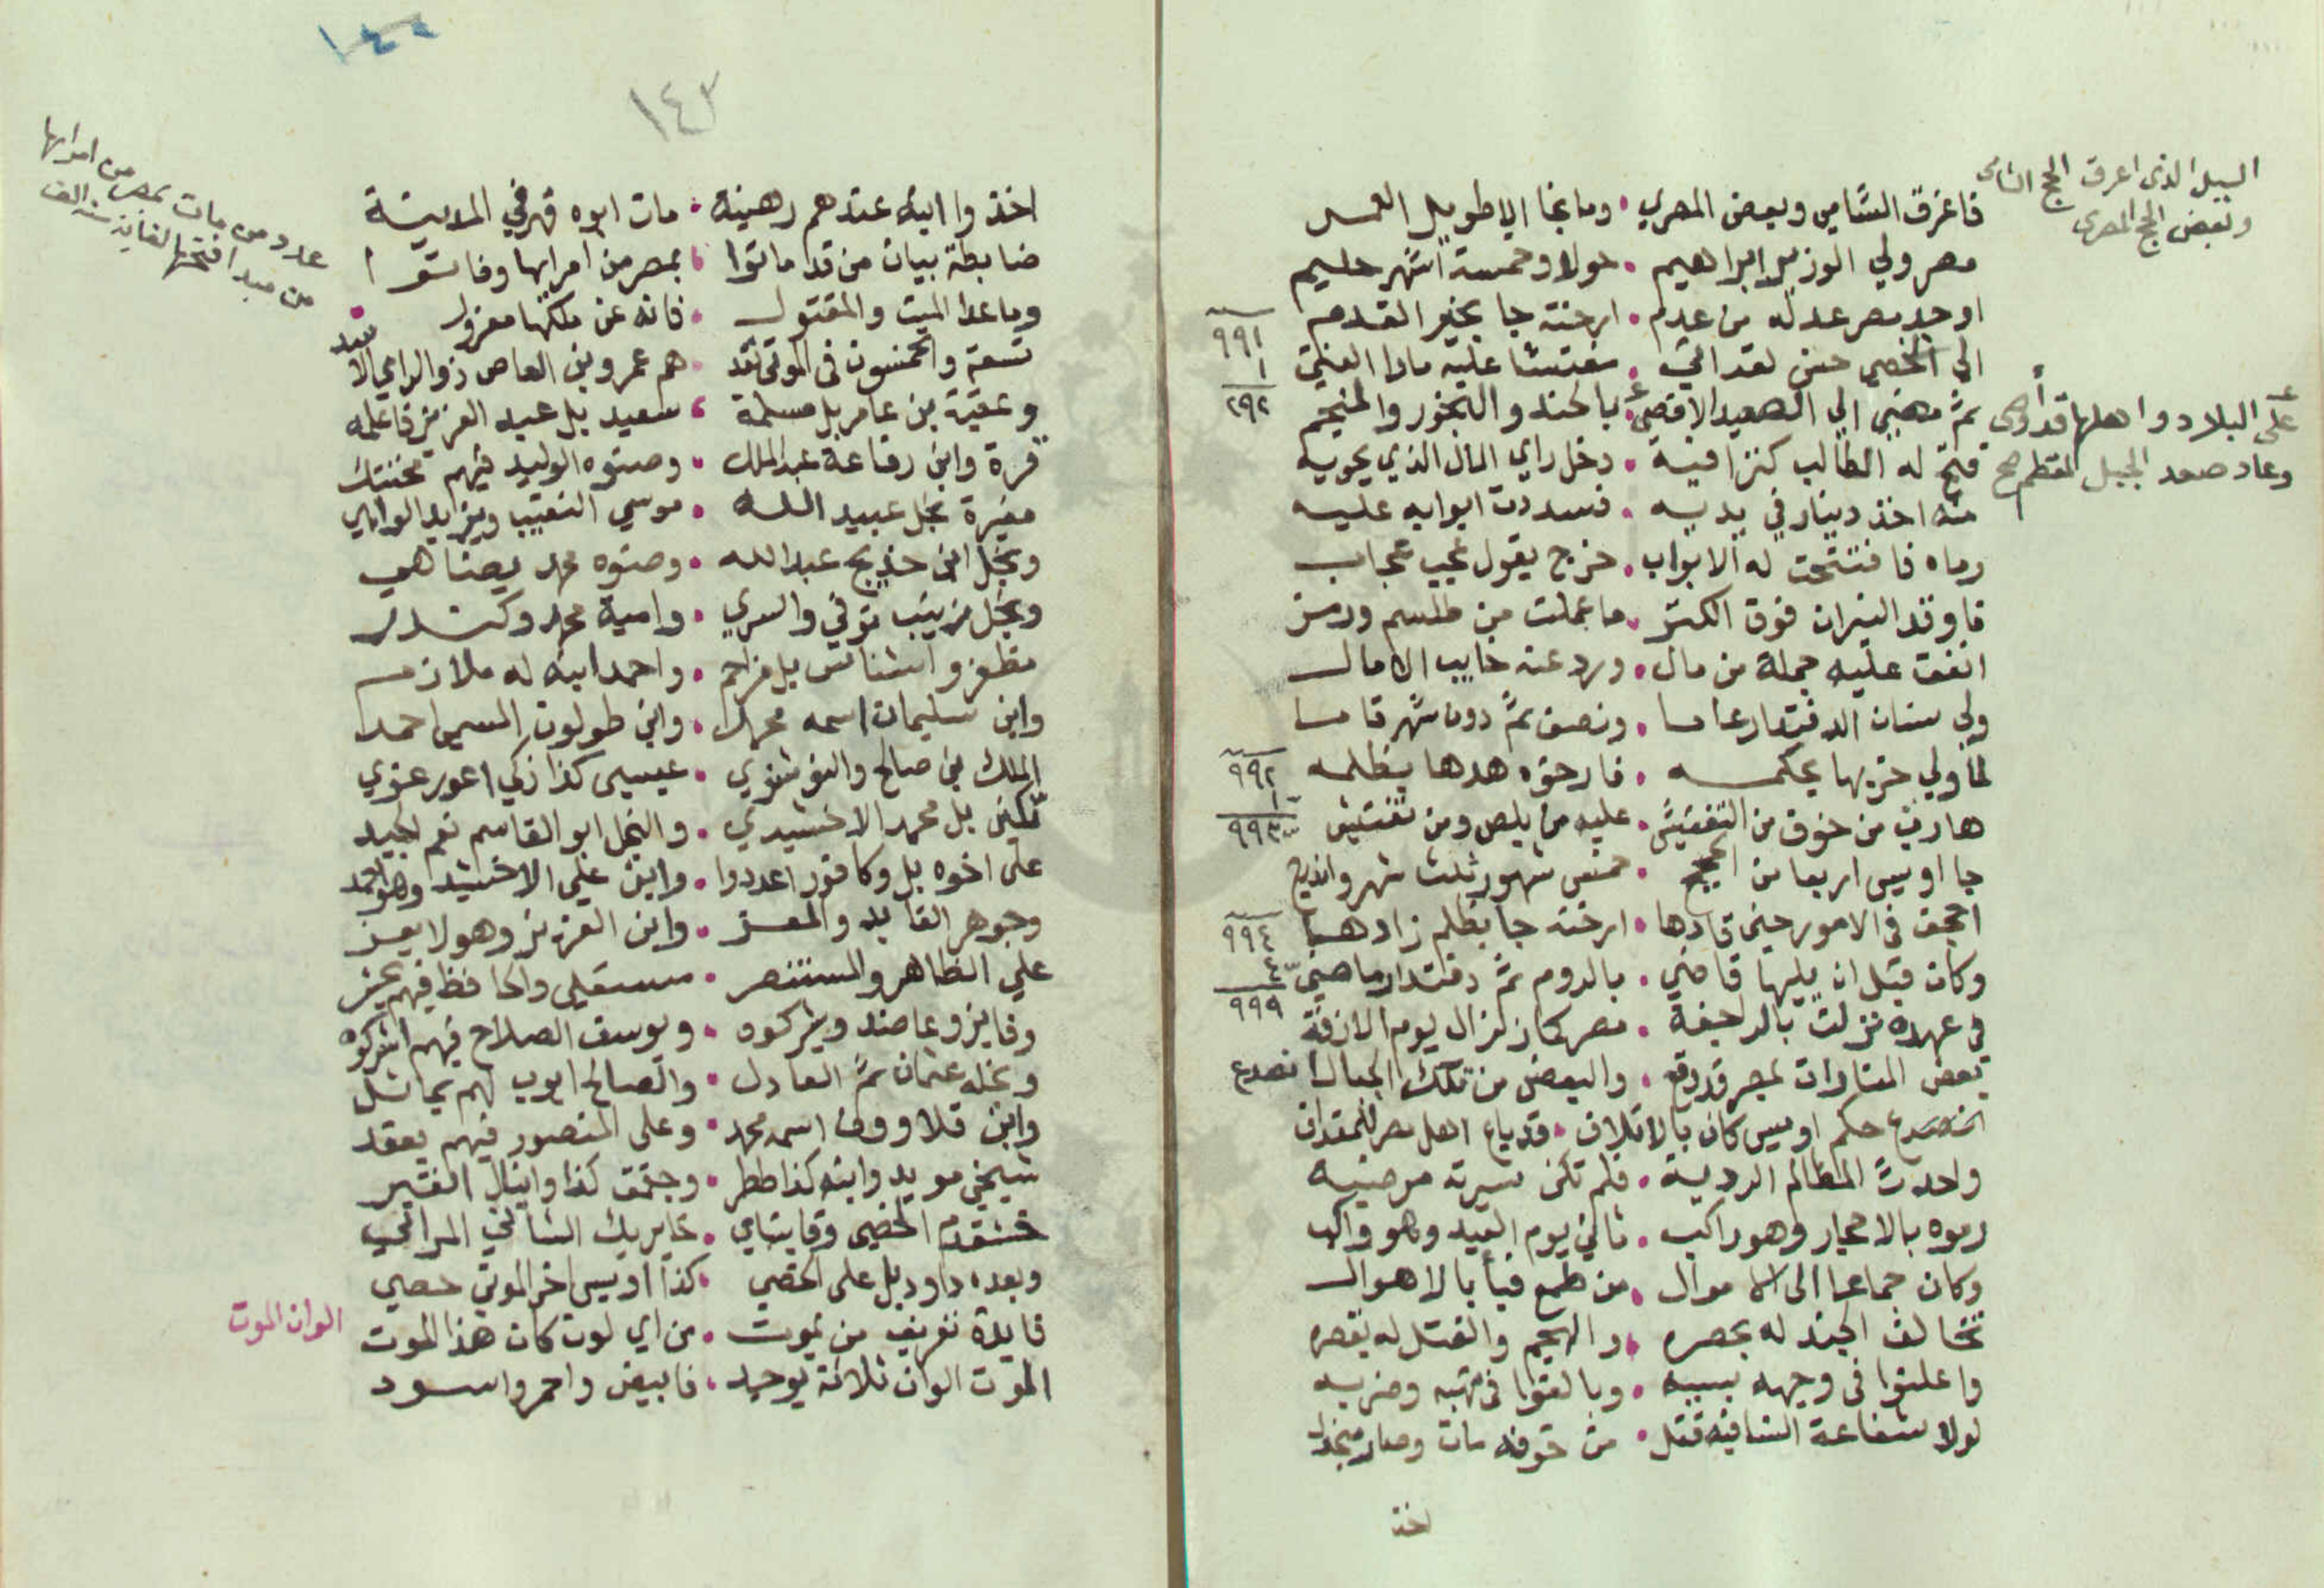 السيل الذى اغرق الحج الشامى
وبعض الحج المصرى
فاغرق الشامي وبعض المصري • وما نجا الا طويل العمر
مصر ولي الوزير ابراهيم • حولا وخمسة اشهر حليم
اوجد مصر عدله من عدم • ارخته جا بخير القدم
٩٩١
الى الخصي حسن لقد اتى • مفتشا عليه ماذا
١
٩٩٢
ثم مضى الي الصعيد الاقصى • بالجند والبخور والمنجم
على البلاد واهلها قد اوصى
وعاد صعد الجبل المقطم صح
فتح له الطالب كنزا فيه • دخل راي المال الذي يحويه
منه اخذ دينار في يديه • فسددت ابوابه عليه
رماه فانفتحت له الابواب • خرج يقول عجب عجاب
فاوقد النيران فوق الكنز • ما عملت من طلسم ورمز
انفق عليه جملة من مال • ورد عنه خايب الامال
ولي سنان الدفتدار عاما • ونصف ثم دون شهر قاما
لما ولي خربها بحكمه • فارخوه هدها بظلمه
٩٩٢
هارب من خوف من التفتيش • عليه من بلص ومن تفتيش
٩٩٣
جا اويس اربعا من الحجج • خمس شهور ثلث شهر واندرج
اجحف في الامور حين قادها • ارخته جا بظلم زادها
٩٩٤
وكان قبل ان يليها قاضي • بالروم ثم دفتدار ماضي
٤
٩٩٩
في عهده نزلت بالرجفة • مصر كما زلزال يوم الازفة
بعض المنارات بمصر قد وقع • والبعض من تلك الجبال انصدع
حكم اويس كان بالاتلاف • قد باع اهل مصر
واحدث المظالم الردية • فلم تكن سيرته مرضية
رموه بالاحجار وهو راكب • ثاني يوم العيد وهو واكب
وكان جماعا الى الاموال • من طمع فبأ بالاهوال
تخالف الجند له بحصره • والهجم والقتل له بقصره
واعلنوا في وجهه بسبه • وبالغوا في نهبه وضربه
لولا شفاعة الشافيه قتل • من خوفه مات وصار
اخذ
١٤٤
١٤٣
عدد من مات بمصر من امرايها
من مبدا فتحها لغاية سنة الف
اخذوا ابنه عندهم رهينة • مات ابوه قهر في المدينة
ضابطة بيان من قد ماتوا • بمصر من امرايها وفاتوا
وما عدا الميت والمقتول • فانه عن ملكها معزول
تسعة والخمسون في الموتى تعد • هم عمرو بن العاص ذو الراي الاسد
وعقبة بن عامر بل مسلمة • سعيد بل عبد العزيز فاعلمه
قرة وابن رفاعة عبد الملك • وصنوه الوليد فيهم
مغيرة نجل عبيد الله • موسي النقيب ويزيد الواهي
ونجل ابن خديج عبد الله • وصنوه محمد يضاهي
ونجل زينب توفي والسري • وامية محمد وكندر
مظفر واشناس بل مزاحم • واحمد ابنه له ملازم
وابن سليمان اسمه محمدا • وابن طولون المسمى احمدا
الملك بن صالح والنوشري • عيسى كذا زكي اعور
تكين بل محمد الاخشيدي • والنجل ابو القاسم نعم الجيد
على اخوه بل وكافور اعددوا • وابن علي الاخشيد وهو احمد
وجوهر القايد والمعز • وابن العزيز وهو لا يعز
علي الظاهر والمستنصر • مستعلي والحافظ فيهم
وفايز وعاضد وشيركوه • ويوسف الصلاح فيهم اشركوه
ونجله عثمان ثم العادل • والصالح ايوب لهم يماثل
وابن قلاوون اسمه محمد • وعلى المنصور فيهم يعقد
شيخي مويد وابنه كذا ططر • وجقمق كذا واينال
خشقدم الخصي وقايتباي • خاير بك
وبعده داود بل على الخصي • كذا اويس اخر الموتى حصي
الوان الموت
فايدة تعريف من يموت • من اي لون كان هذا الموت
الموت الوان ثلاثة يوجد • فابيض واحمر واسود